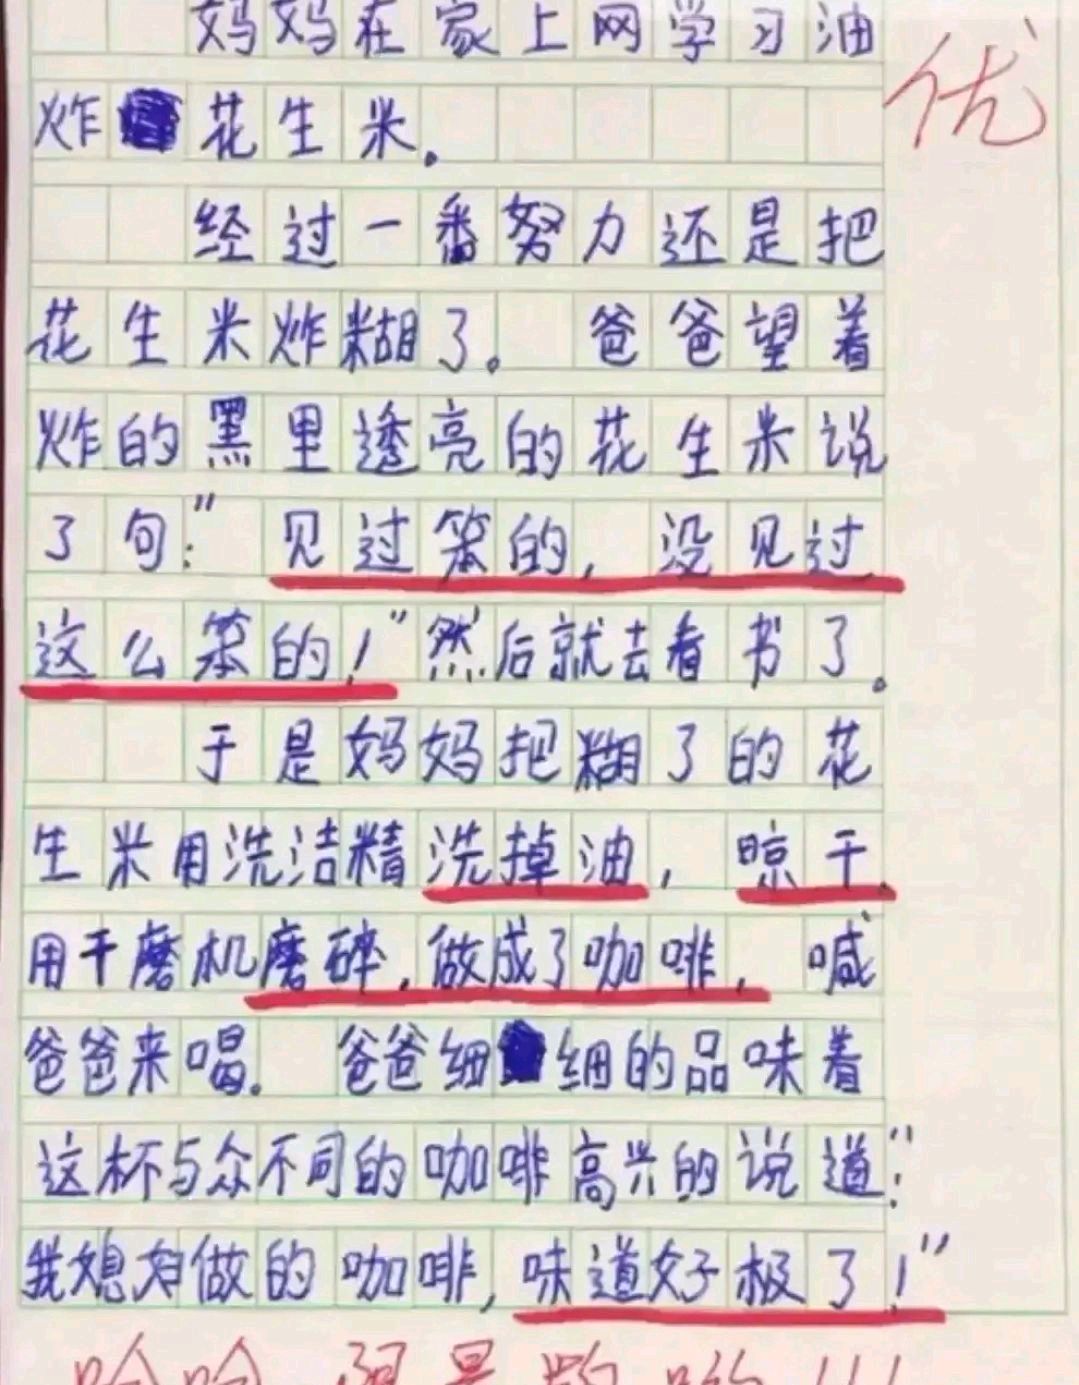 妈妈在家上网学习油
优
炸花生米。
经过一番努力还是把
花生米炸糊了。爸爸望着
炸的黑里透亮的花生米说
了句："见过笨的，没见过
这么笨的！"然后就去看书了。
于是妈妈把糊了的花
生米用洗洁精洗掉油，晾干。
用干磨机磨碎，做成了咖啡，喊
爸爸来喝。爸爸细细的品味着
这杯与众不同的咖啡高兴的说道："
我媳妇做的咖啡，味道好极了！"
哈哈